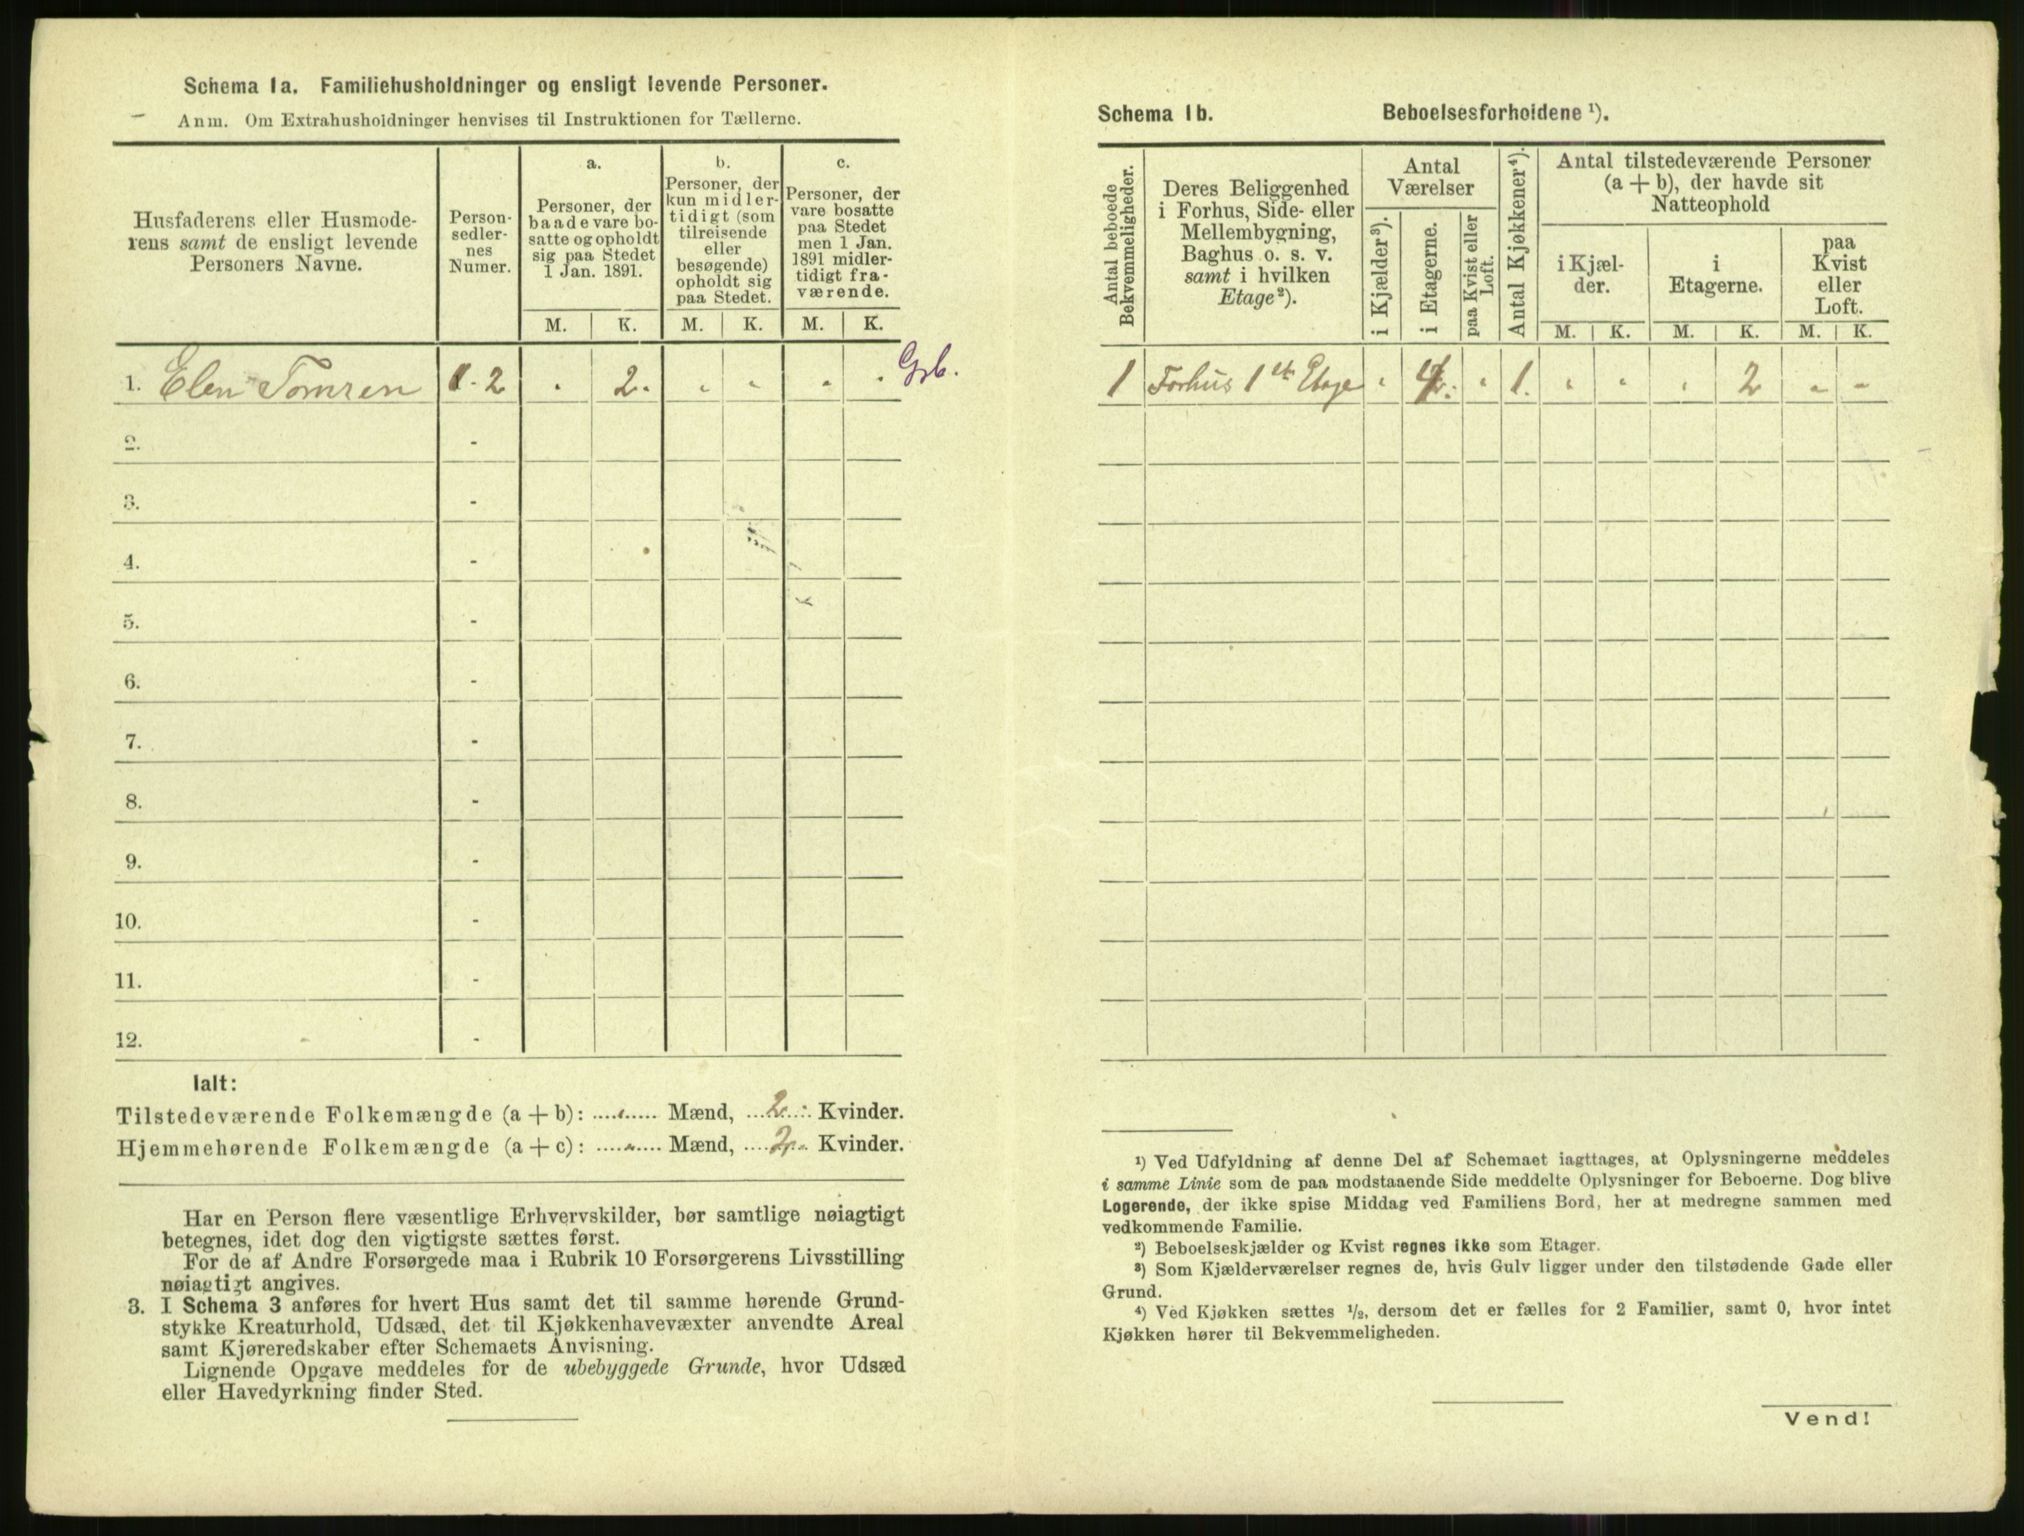 Schema 1a. Familiehusholdninger og ensligt levende Personer.
Anm. Om Extrahusholdninger henvises til Instruktionen for Tællerne.
Husfaderens eller Husmode-
rens samt de ensligt levende
Personers Navne.
Person-
sedler-
nes
Numer.
a.
Personer, der
baade vare bo-
satte og opholdt
sig paa Stedet
1 Jan. 1891.
b.
Personer, der
kun midler-
tidigt (som
tilreisende
eller
besøgende)
opholdt sig
paa Stedet.
c.
Personer, der
vare bosatte
paa Stedet
men 1 Jan.
1891 midler-
tidigt fra-
værende.
M. K. M. K. M. K.
1. Elen Tomren 1-2 " 2. " " " " Grb.
2. -
3. -
4. -
5. -
6. -
7. -
8. -
9. -
10. -
11. -
12. -
Ialt:
Tilstedeværende Folkemængde (a + b): ....„..... Mænd, ...2... Kvinder.
Hjemmehørende Folkemængde (a + c): .....„.... Mænd, ....2... Kvinder.
Har en Person flere væsentlige Erhvervskilder, bør samtlige nøiagtigt
betegnes, idet dog den vigtigste sættes først.
For de af Andre Forsørgede maa i Rubrik 10 Forsørgerens Livsstilling
nøiagtigt angives.
3. I Schema 3 anføres for hvert Hus samt det til samme hørende Grund-
stykke Kreaturhold, Udsæd, det til Kjøkkenhavevæxter anvendte Areal
samt Kjøreredskaber efter Schemaets Anvisning.
Lignende Opgave meddeles for de ubebyggede Grunde, hvor Udsæd
eller Havedyrkning finder Sted.
Schema 1b. Beboelsesforholdene ¹).
Antal beboede
Bekvemmeligheder.
Deres Beliggenhed
i Forhus, Side- eller
Mellembygning,
Baghus o. s. v.
samt i hvilken
Etage²).
Antal
Værelser
i Kjælder³).
i Etagerne.
paa Kvist eller
Loft.
Antal Kjøkkener⁴).
Antal tilstedeværende Personer
(a + b), der havde sit
Natteophold
i Kjæl-
der.
i
Etagerne.
paa
Kvist
eller
Loft.
M. K. M. K. M. K.
1 Forhus 1ste Etage " " 1. " " " 2 " "
¹) Ved Udfyldning af denne Del af Schemaet iagttages, at Oplysningerne meddeles
i samme Linie som de paa modstaaende Side meddelte Oplysninger for Beboerne. Dog blive
Logerende, der ikke spise Middag ved Familiens Bord, her at medregne sammen med
vedkommende Familie.
²) Beboelseskjælder og Kvist regnes ikke som Etager.
³) Som Kjælderværelser regnes de, hvis Gulv ligger under den tilstødende Gade eller
Grund.
⁴) Ved Kjøkken sættes ½, dersom det er fælles for 2 Familier, samt 0, hvor intet
Kjøkken hører til Bekvemmeligheden.
Vend!